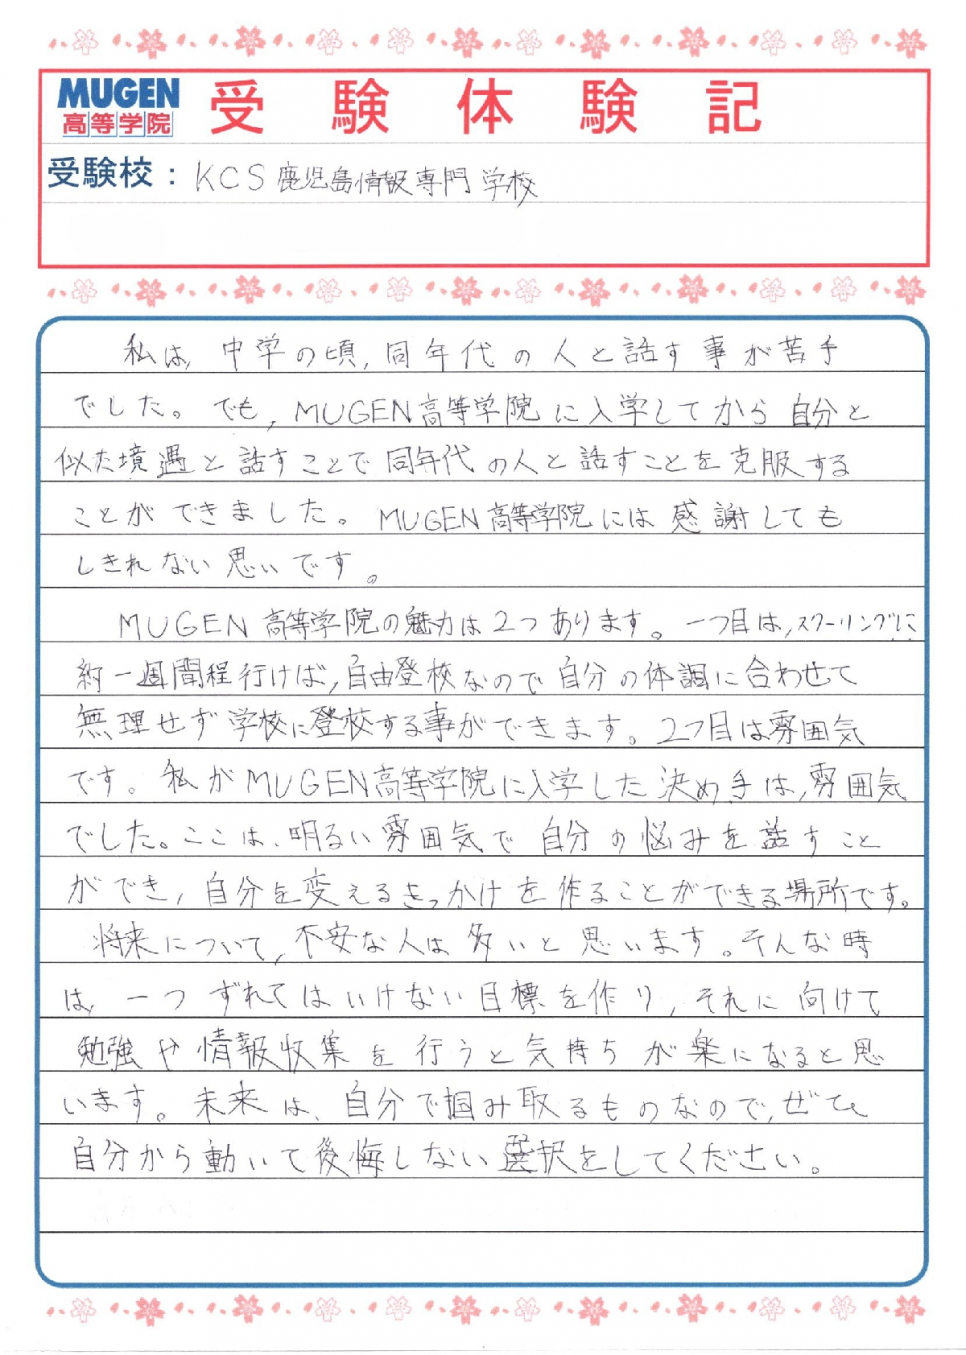 MUGEN
高等学院
受験体験記
受験校：KCS鹿児島情報専門学校
私は、中学の頃,同年代の人と話す事が苦手
でした。でも,MUGEN高等学院に入学してから自分と
似た境遇と話すことで同年代の人と話すことを克服する
ことができました。MUGEN高等学院には感謝しても
しきれない思いです。
MUGEN高等学院の魅力は2つあります。一つ目は,スクーリングに
約一週間程行けば,自由登校なので自分の体調に合わせて
無理せず学校に登校する事ができます。2つ目は雰囲気
です。私がMUGEN高等学院に入学した決め手は,雰囲気
でした。ここは、明るい雰囲気で自分の悩みを話すこと
ができ,自分を変えるきっかけを作ることができる場所です。
将来について,不安な人は多いと思います。そんな時
は,一つずれてはいけない目標を作り,それに向けて
勉強や情報収集を行うと気持ちが楽になると思
います。未来は、自分で掴み取るものなので,ぜひ
自分から動いて後悔しない選択をしてください。